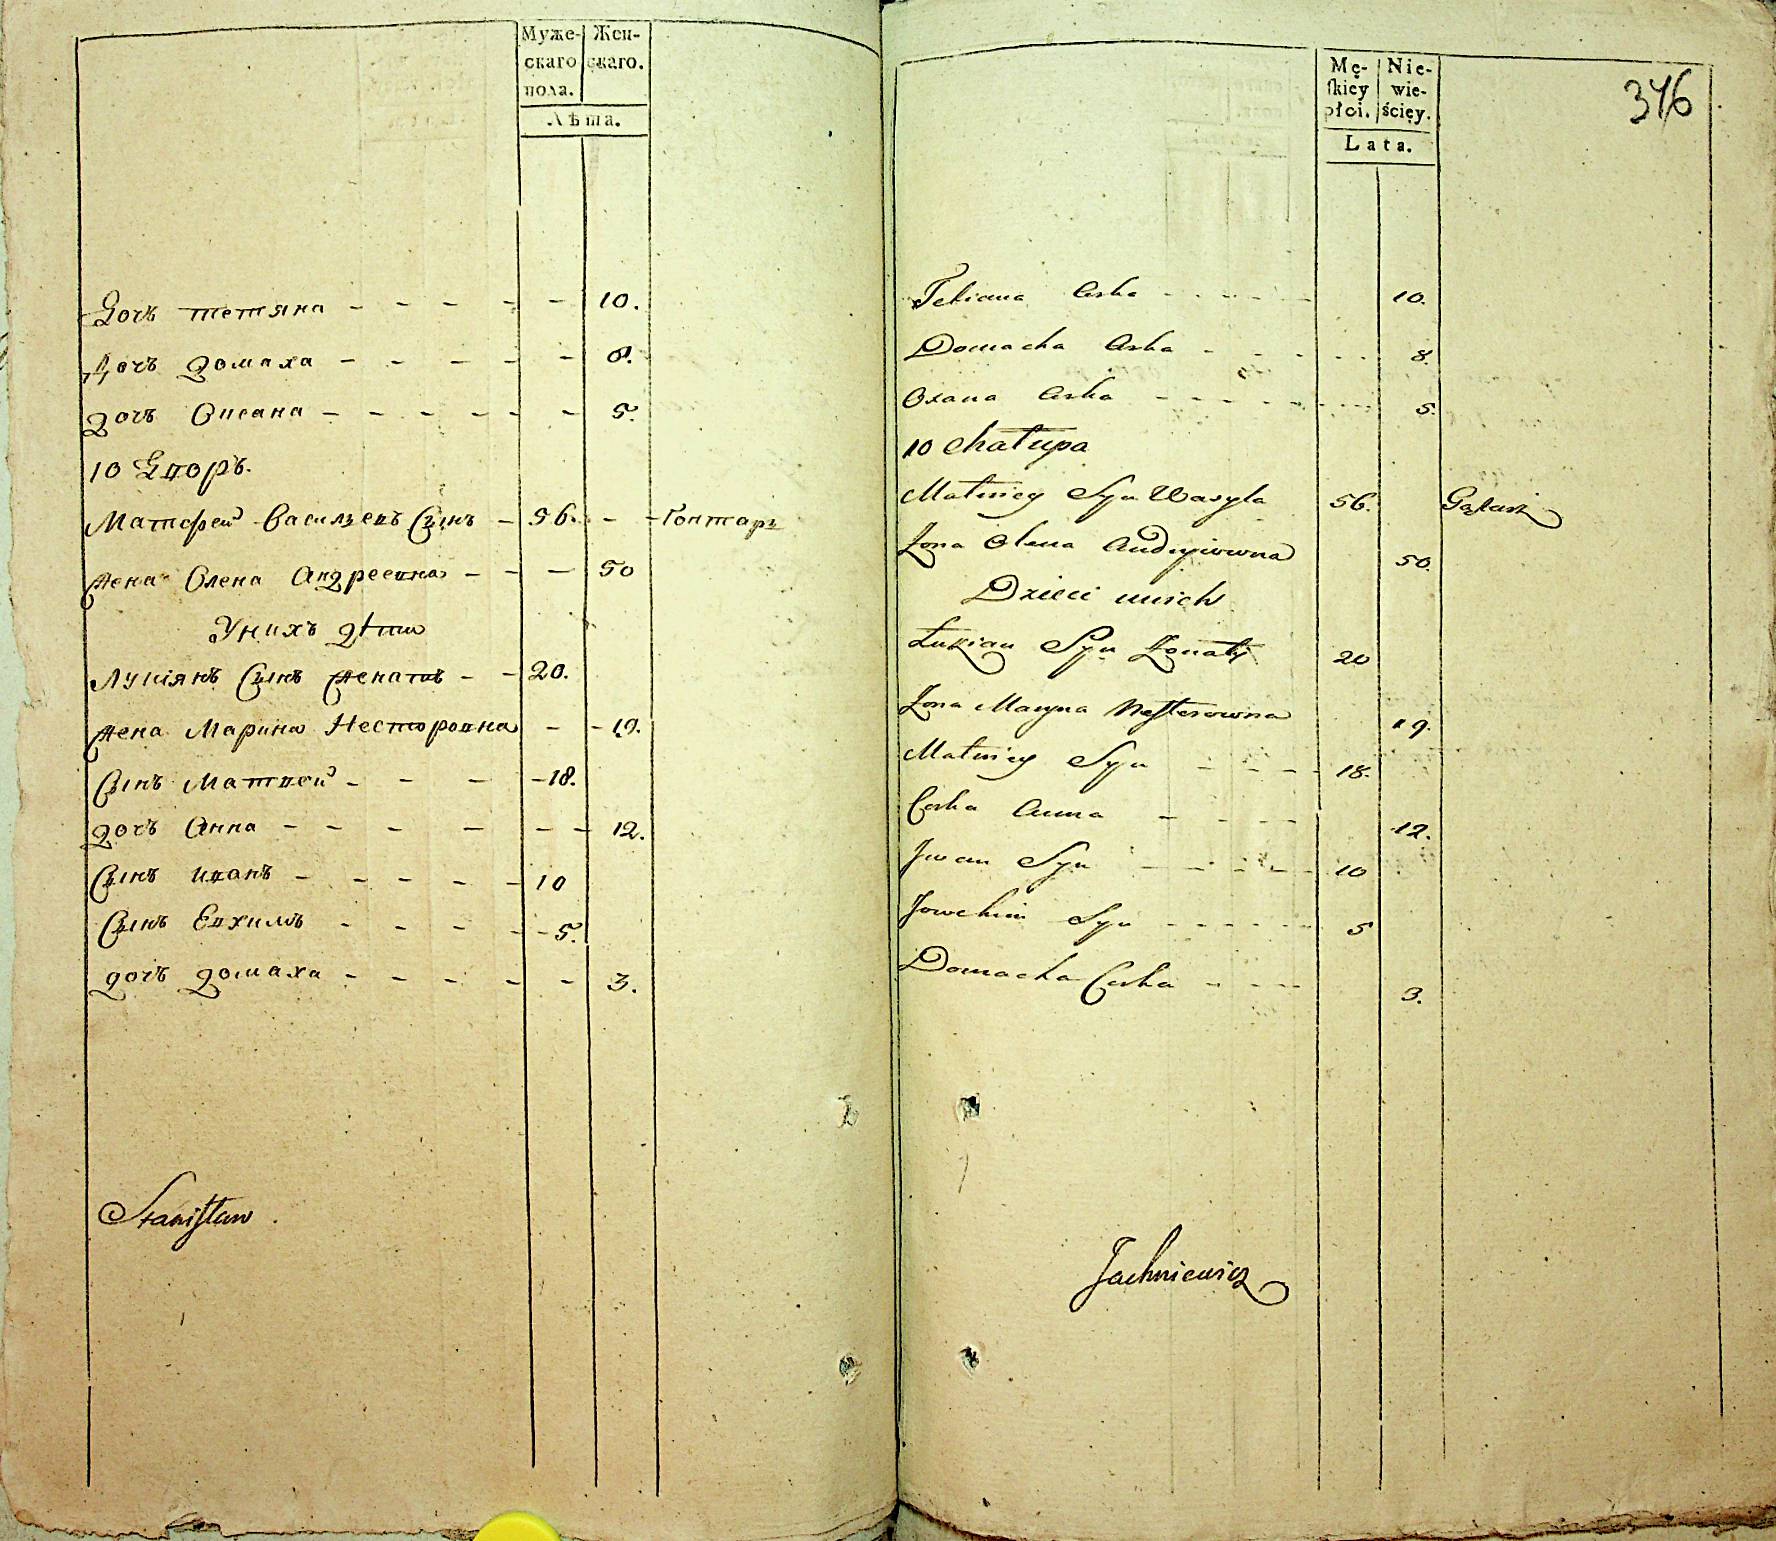 Муже- Жен-
скаго скаго.
пола.
Лѣта.
Дочъ тетяна - - - - - 10.
Дочъ домаха - - - - - 8.
дочъ Оксана - - - - - - 5.
10 Дворъ.
Матфей Васильевъ Сынъ - 56. - - Гонтаръ
жена Олена Андреевна - - - 50
У нихъ дѣти
Лукіянъ Сынъ женатъ - - 20.
жена Марина Несторовна - - 19.
Сынъ Матвей - - - - 18.
дочъ Анна - - - - - - 12.
Сынъ иванъ - - - - - 10
Сынъ Евхимъ - - - - - 5.
дочъ домаха - - - - - 3.
Stanisław
Mę- Nie-
skiey wie-
płci. ścięy.
Lata.
376
Tetiana Corka - - - - - 10.
Domacha Corka - - - - - 8
Oxana Corka - - - - - - 5.
10 Chałupa
Matwiey Syn Wasyla 56.
Zona Olena Andryiowna 50.
Dzieci unich
Łukian Syn Zonaty 20
Zona Maryna Nesterowna 19.
Matwiey Syn - - - - 18.
Corka Anna - - - - 12.
Jwan Syn - - - - - 10
Jowchim Syn - - - - - 5
Domacha Corka - - - - 3.
Jachniewicz